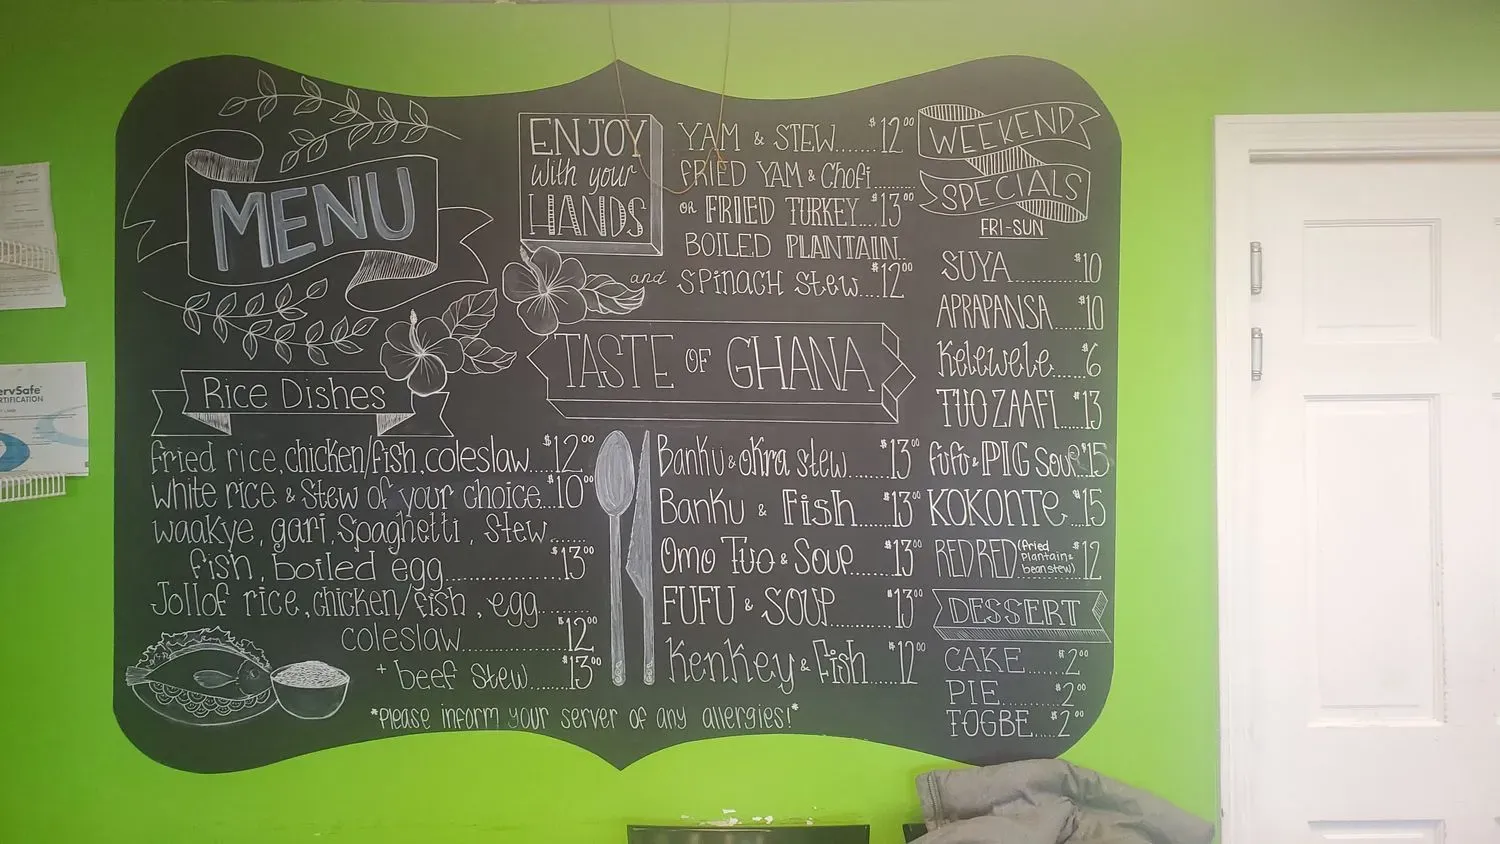 MENU
Rice Dishes
fried rice, chicken/fish, coleslaw....$12.00
white rice & Stew of your choice...$10.00
waakye, gari, Spaghetti, Stew......
fish, boiled egg...............$13.00
Jollof rice, chicken/fish, egg.........
coleslaw...............$12.00
+ beef stew.......$13.00
*Please inform your server of any allergies!*
ENJOY
with your
HANDS
YAM & STEW.......$12.00
FRIED YAM & Chofi.........
or FRIED TURKEY...$13.00
BOILED PLANTAIN..
and SPINACH Stew...$12.00
TASTE OF GHANA
Banku & okra stew.....$13.00
Banku & Fish......$13.00
Omo Tuo & Soup.....$13.00
FUFU & SOUP...........$13.00
Kenkey & Fish....$12.00
WEEKEND
SPECIALS
FRI-SUN
SUYA..........$10
APRAPANSA......$10
Kelewele.....$6
TUO ZAAFI...$13
fufu & PIG Soup $15
KOKONTE...$15
RED RED (fried Plantain & bean stew) $12
DESSERT
CAKE.....$2.00
PIE..........$2.00
TOGBE.....$2.00
ervSafe
RTIFICATION